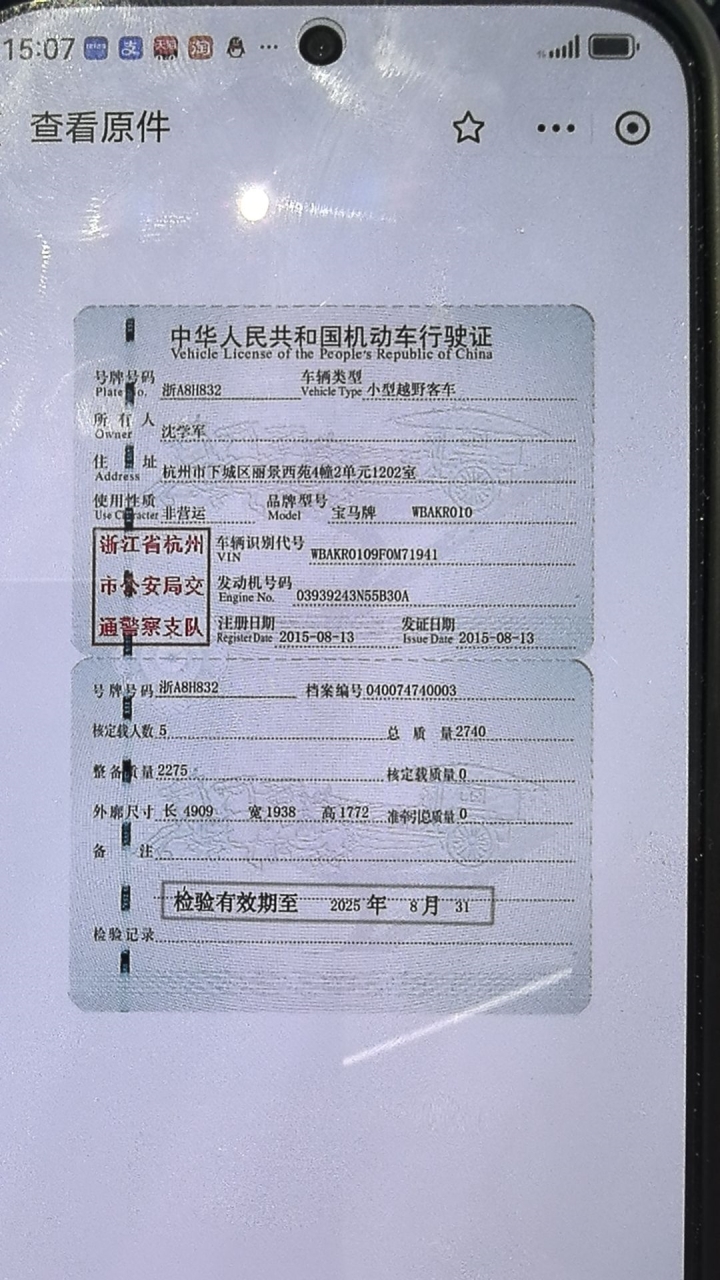 15:07
查看原件
中华人民共和国机动车行驶证
Vehicle License of the People's Republic of China
号牌号码 浙A8H832 车辆类型 小型越野客车
Plate No. Vehicle Type
所有人 沈学军
Owner
住址 杭州市下城区丽景西苑4幢2单元1202室
Address
使用性质 非营运 品牌型号 宝马牌 WBAKR010
Use Character Model
浙江省杭州
市公安局交
通警察支队
车辆识别代号 WBAKR0109F0M71941
VIN
发动机号码 03939243N55B30A
Engine No.
注册日期 2015-08-13 发证日期 2015-08-13
Register Date Issue Date
号牌号码 浙A8H832 档案编号 040074740003
核定载人数 5 总质量 2740
整备质量 2275 核定载质量 0
外廓尺寸 长 4909 宽 1938 高 1772 准牵引总质量 0
备注
检验有效期至 2025 年 8 月 31
检验记录